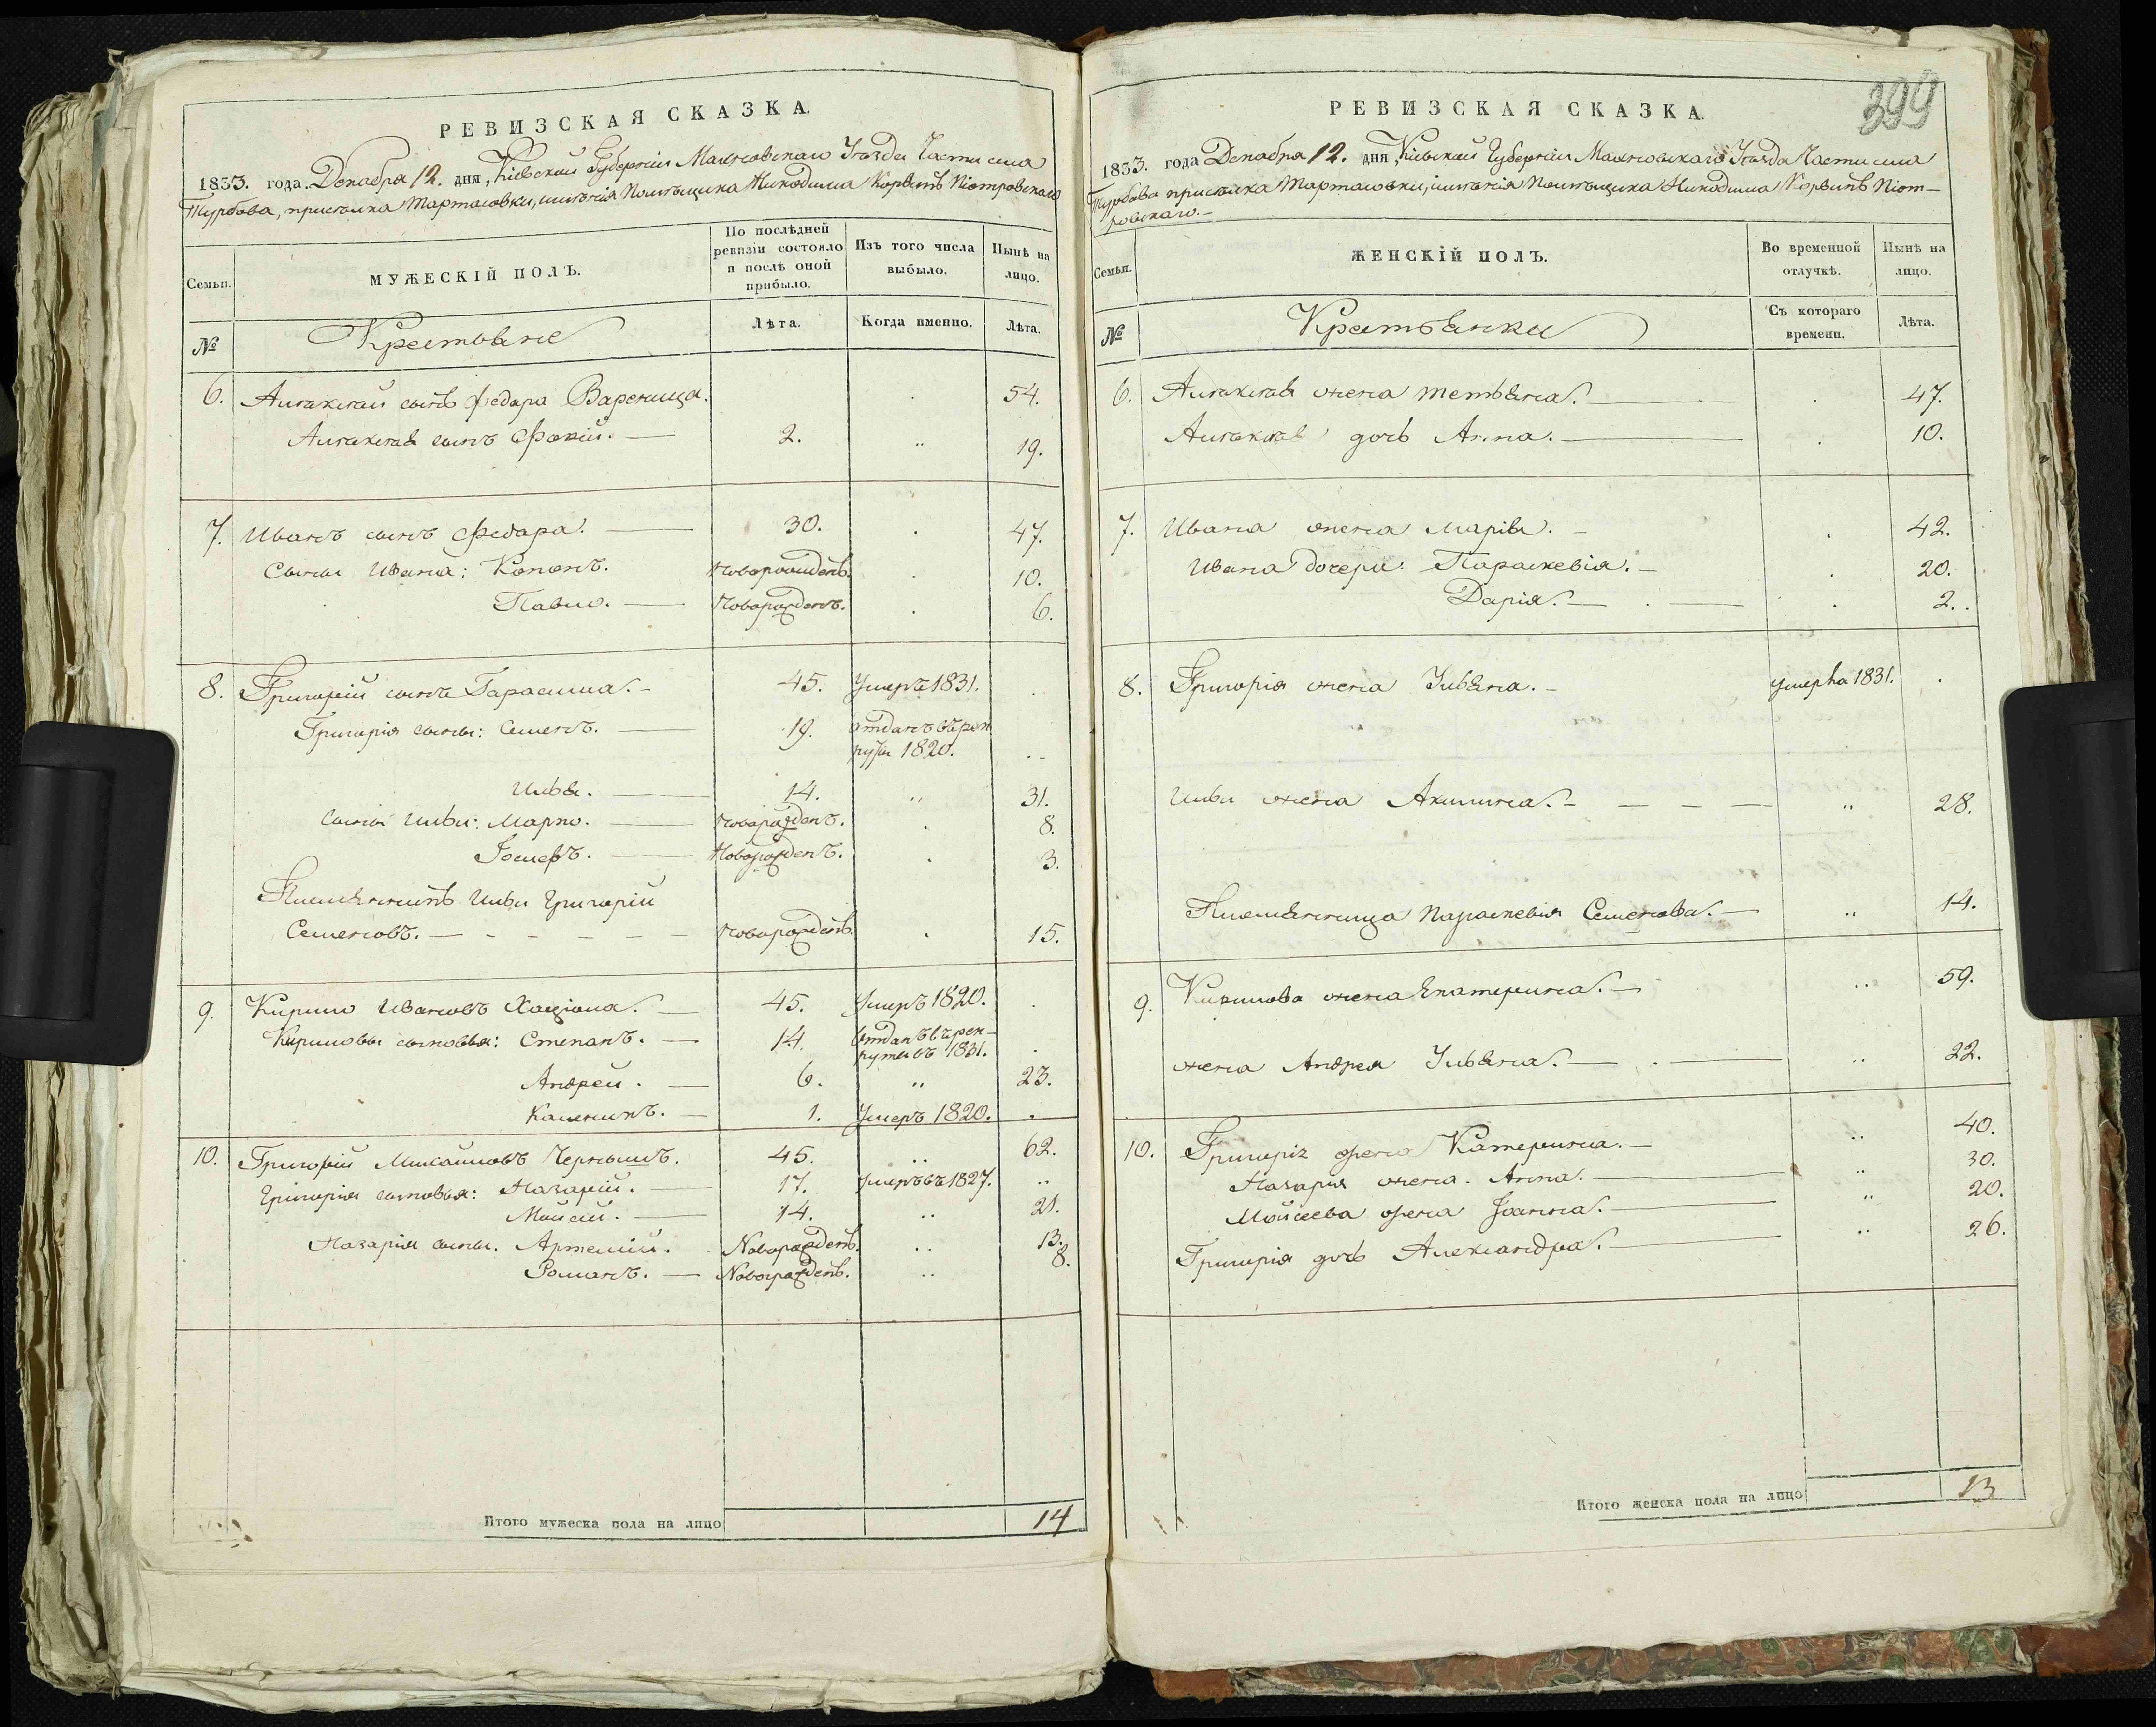 РЕВИЗСКАЯ СКАЗКА.
1833. года Декабря 12. дня, Кіевской Губерніи Махновскаго Уѣзда Части села
Турбова, приселка Мартасовки, имѣнія Помѣщика Никодима Корвинъ Піотровскаго
Семьи.
МУЖЕСКІЙ ПОЛЪ.
По послѣдней ревизіи состояло и послѣ оной прибыло.
Изъ того числа выбыло.
Нынѣ на лицо.
№
Крестьяне
Лѣта.
Когда именно.
Лѣта.
6. Алексѣй сынъ Федора Вареница. . 54.
Алексѣя сынъ Фокій. — 2. „ 19.
7. Иванъ сынъ Федора. — 30. . 47.
Сыны Ивана: Кононъ. Новорожденъ. . 10.
Павло. — Новорожденъ. . 6.
8. Григорій сынъ Гарасима. - 45. Умеръ 1831. .
Григорія сыны: Семенъ. — 19. отданъ въ рек
руты 1820. ..
Илья. — 14. „ 31.
сыны Ильи: Марко. — Новорожденъ. . 8.
Іосифъ. — Новорожденъ. . 3.
Племянникъ Ильи Григорій
Семеновъ. — - - - - - Новорожденъ. . 15.
9. Кирило Ивановъ — 45. Умеръ 1820. .
Кириловы сыновья: Степанъ. — 14. Отданъ въ рек-
руты въ 1831. .
Андрей. — 6. „ 23.
Каленикъ. — 1. Умеръ 1820. .
10. Григорій Михайловъ Чернышъ. 45. .. 62.
Григорія сыновья: Назарій. — 17. умеръ въ 1827. ..
Мойсій. — 14. .. 21.
Назарія сыны. Артемій. Новорожденъ. .. 13.
Романъ. — Новорожденъ. .. 8.
Итого мужеска пола на лицо 14
399
РЕВИЗСКАЯ СКАЗКА.
1833. года Декабря 12. дня, Кіевской Губерніи Махновскаго Уѣзда Части села
Турбова приселка Мартасовки, имѣнія Помѣщика Никодима Корвинъ Піот-
ровскаго. —
Семьи.
ЖЕНСКІЙ ПОЛЪ.
Во временной отлучкѣ.
Нынѣ на лицо.
№
Крестьянки
Съ котораго времени.
Лѣта.
6. Алексѣя жена Тетьяна. — . 47.
Алексѣя дочь Анна. — . 10.
7. Ивана жена Марія. - . 42.
Ивана дочери Параскевія. - . 20.
Дарія. — . — . 2.
8. Григорія жена Ульяна. - умерла 1831. .
Ильи жена Акилина. - — — — „ 28.
Племянница Параскевія Семенова. — „ 14.
9. Кирилова жена Екатерина. — .. 59.
жена Андрея Ульяна. — . — .. 22.
10. Григорія жена Катерина. — .. 40.
Назарія жена. Анна. — .. 30.
Мойсеева жена Іоанна. — .. 20.
Григорія дочь Александра. — .. 26.
Итого женска пола на лицо 13